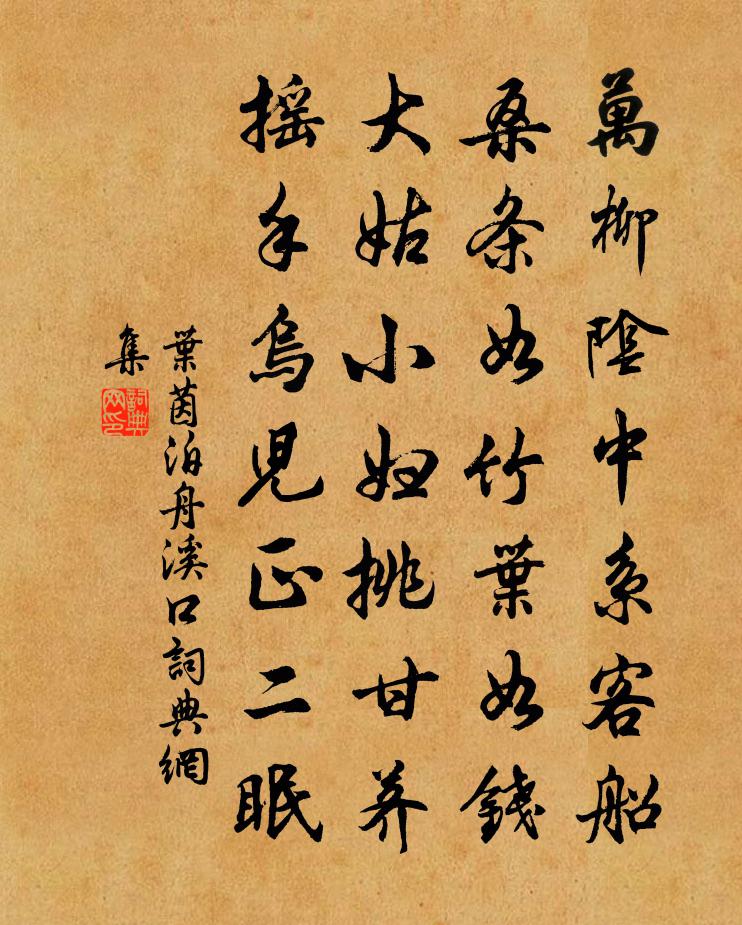 萬柳陰中系客船
桑条如竹葉如錢
大姑小妇挑甘养
摇手烏児正二眠
葉茵泊舟溪口詞典網
集
詞典
网印